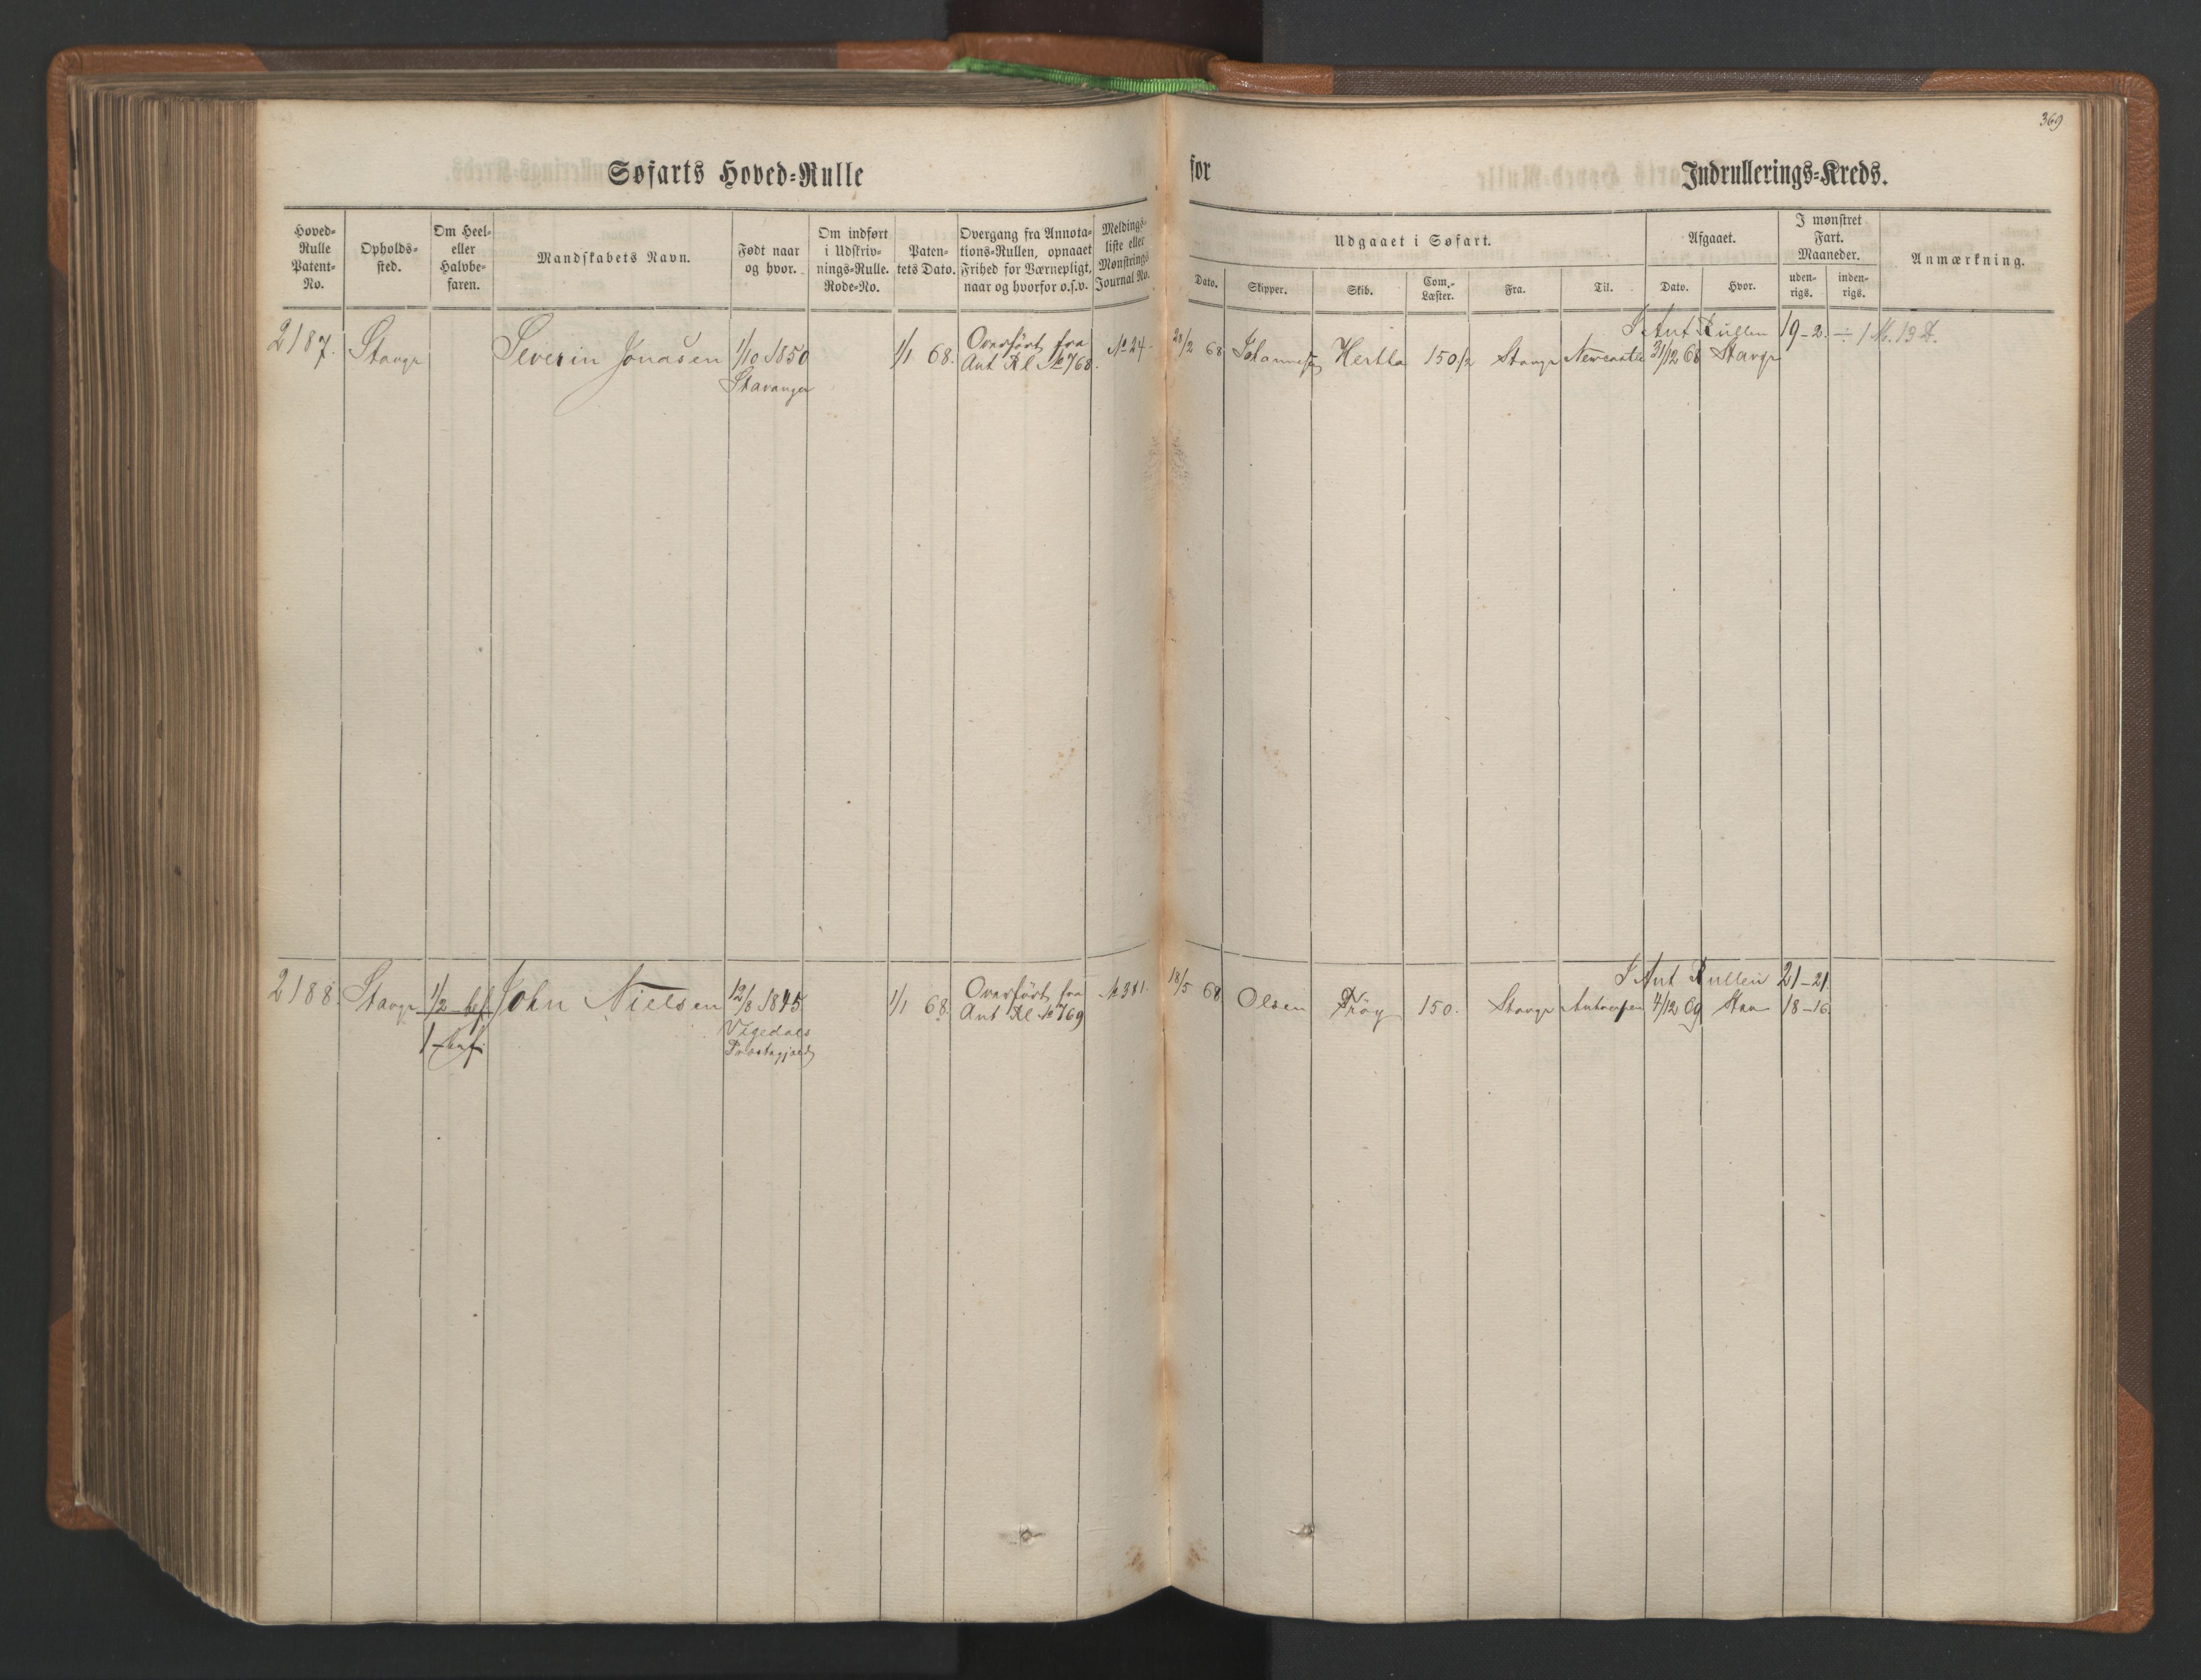 369
Søfarts Hoved-Rulle for Indrullerings-Kreds.
Hoved-Rulle Patent-No.
Opholds-sted.
Om Heel- eller Halvbe-faren.
Mandskabets Navn.
Født naar og hvor.
Om indført i Udskriv-nings-Rulle. Rode-No.
Paten-tets Dato.
Overgang fra Annota-tions-Rullen, opnaaet Frihed for Værnepligt, naar og hvorfor o.s.v.
Meldings-liste eller Mønstrings Journal No.
Udgaaet i Søfart.
Dato.
Skipper.
Skib.
Com.-Læster.
Fra.
Til.
Afgaaet.
Dato.
Hvor.
I mønstret Fart. Maaneder.
uden-rigs.
inden-rigs.
Anmærkning.
I Ant Rullen 19-2. ÷ 1 M. 13 D.
2187. Stavgr Severin Jonasen 1/10 1850 1/1 68. Overført fra No 24 28/2 68 Johannesen Hertha 150 1/2 Stavgr Newcastle 31/12 68 Stavgr
Stavanger Ant Rl No 768.
I Ant Rullen 21-21
2188. Stavgr 1/2 bef John Nielsen 12/8 1845 1/1 68. Overført fra No 381 18/5 68 Olsen Frøy 150. Stavgr Antwerpen 4/12 69 Stav 18-16
1 bef. Vigedals Ant Rl No 769
Præstegjæld